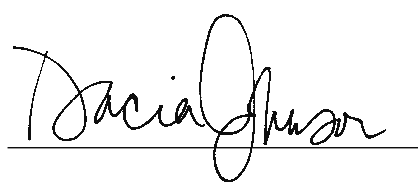 Dacia Johnson